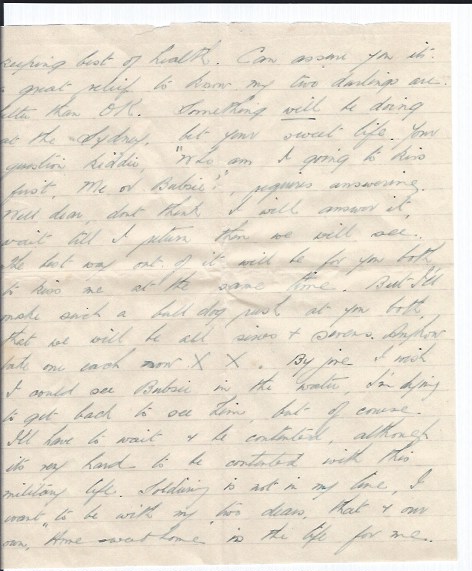 keeping best of health. Can assure you its
a great relief to know my two darlings are
better than OK. Something will be doing
at the Sydney, bet your sweet life. Your
question kiddie, "Who am I going to kiss
first, Me or Bubsie?", requires answering.
Well dear, dont think I will answer it,
wait till I return then we will see.
The best way out of it will be for you both
to kiss me at the same time. But I'll
make such a bull dog rush at you both,
that we will be all sixes & sevens. Anyhow
take one each now X X. By jove I wish
I could see Bubsie in the water. I'm dying
to get back to see him, but of course
I'll have to wait & be contented, although
its very hard to be contented with this
military life. Soldiering is not in my line, I
want to be with my two dears, that & our
own, Home sweet home is the life for me.